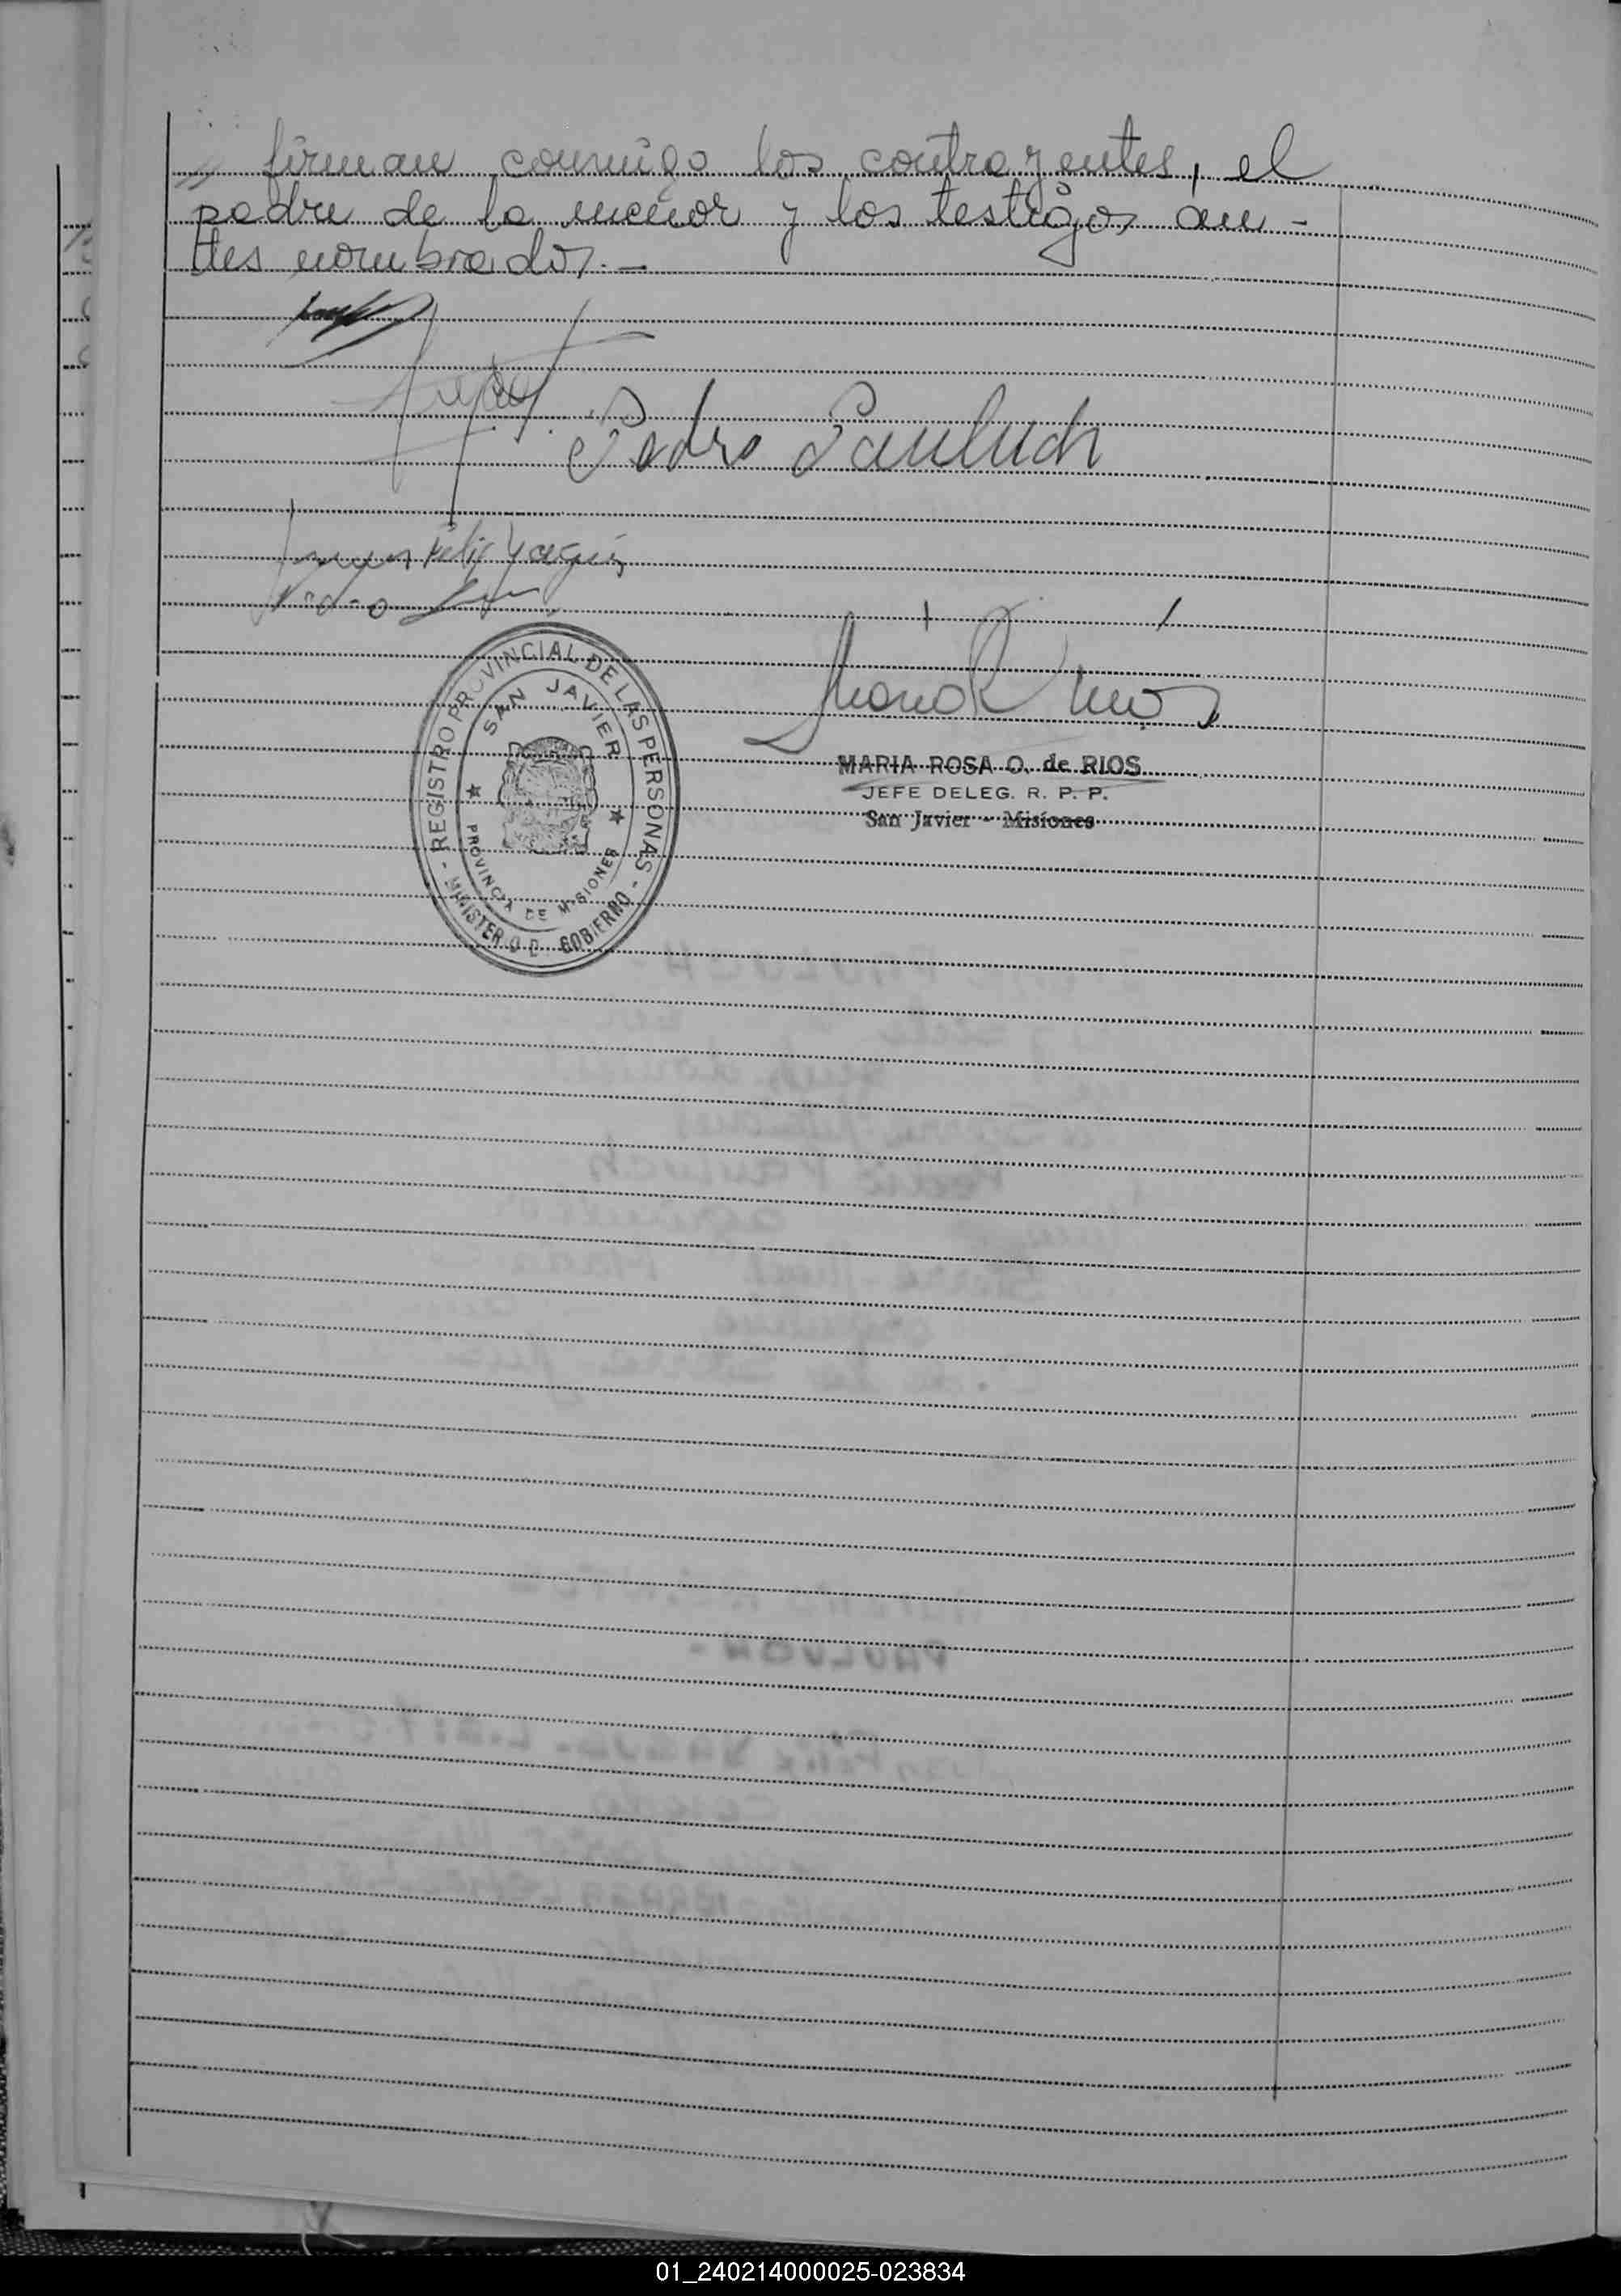 // firman conmigo los contrayentes, el
padre de la menor y los testigos an-
tes nombrados.-
Pedro Pauluch
Juan Félix Yagus
Pedro
- REGISTRO PROVINCIAL DE LAS PERSONAS -
SAN JAVIER
PROVINCIA DE MISIONES
MINISTERIO D. GOBIERNO
Maria R Rios
MARIA ROSA O. de RIOS
JEFE DELEG. R. P. P.
San Javier - Misiones
01_240214000025-023834